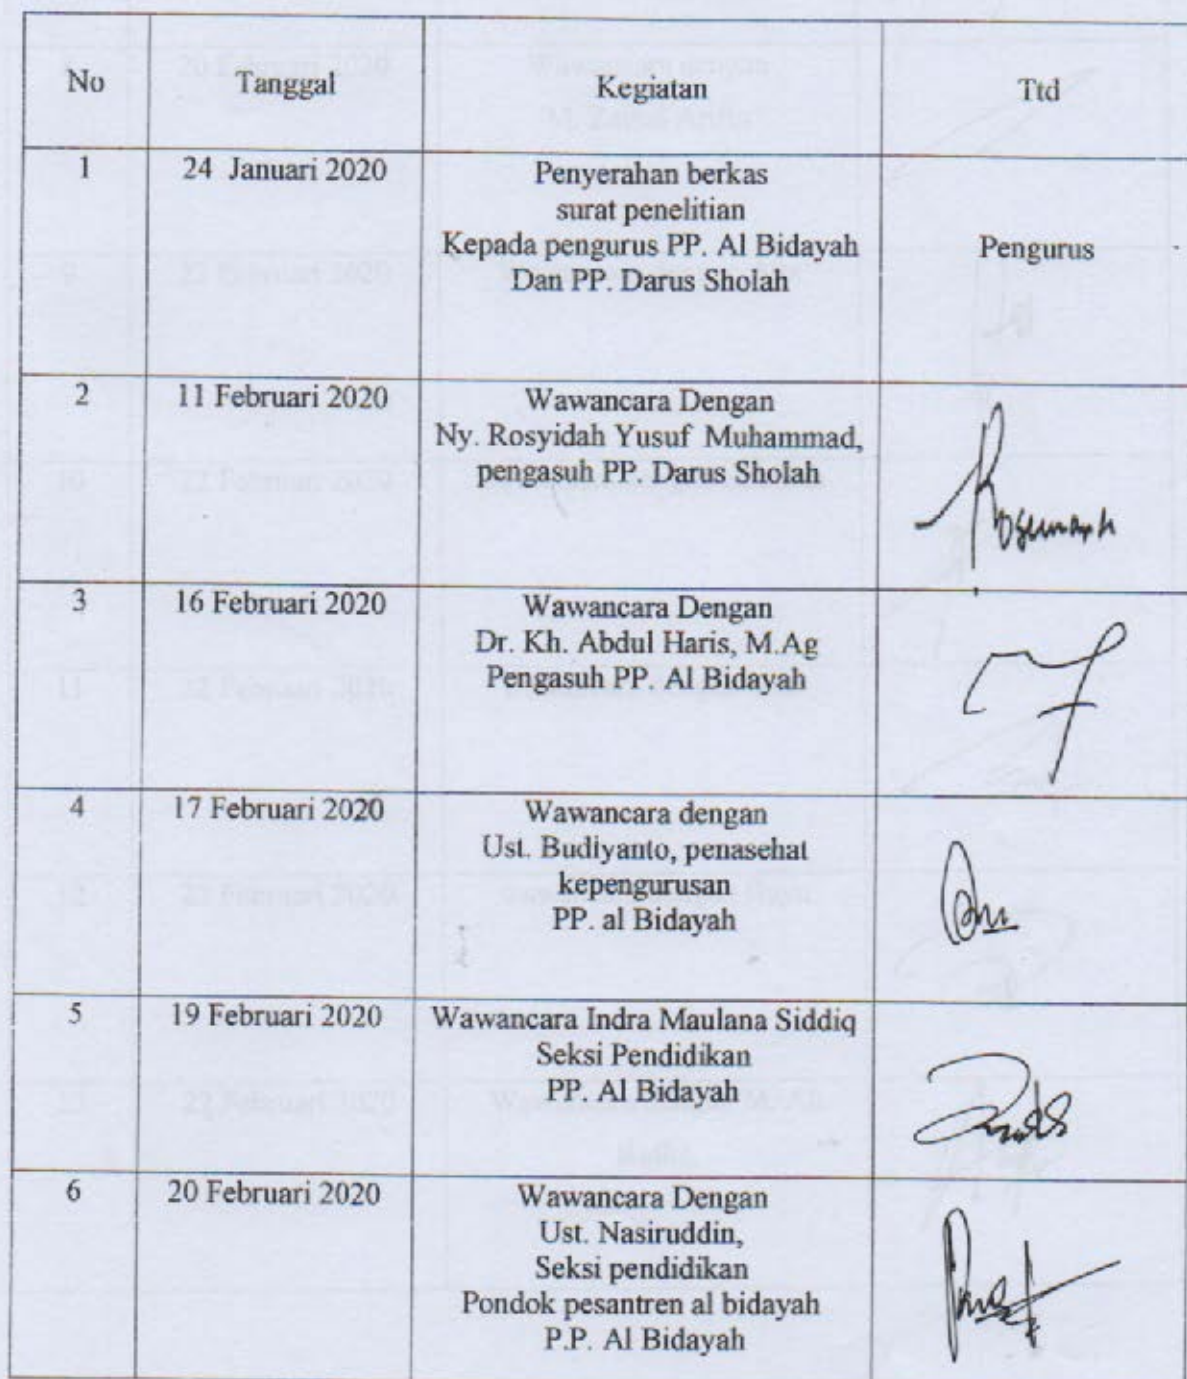 No Tanggal Kegiatan Ttd
1 24 Januari 2020 Penyerahan berkas
surat penelitian
Kepada pengurus PP. Al Bidayah Pengurus
Dan PP. Darus Sholah
2 11 Februari 2020 Wawancara Dengan
Ny. Rosyidah Yusuf Muhammad,
pengasuh PP. Darus Sholah
3 16 Februari 2020 Wawancara Dengan
Dr. Kh. Abdul Haris, M.Ag
Pengasuh PP. Al Bidayah
4 17 Februari 2020 Wawancara dengan
Ust. Budiyanto, penasehat
kepengurusan
PP. al Bidayah
5 19 Februari 2020 Wawancara Indra Maulana Siddiq
Seksi Pendidikan
PP. Al Bidayah
6 20 Februari 2020 Wawancara Dengan
Ust. Nasiruddin,
Seksi pendidikan
Pondok pesantren al bidayah
P.P. Al Bidayah